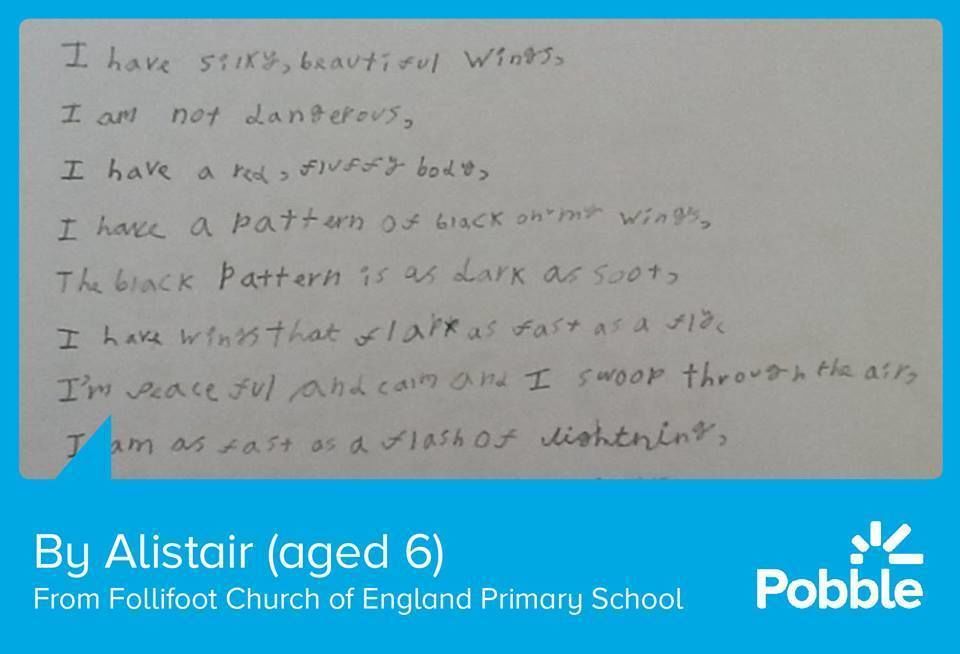 I have silky, beautiful wings,
I am not dangerous,
I have a red, fluffy body,
I have a pattern of black on my wings,
The black pattern is as dark as soot,
I have wings that as fast as a fly,
I'm peaceful and calm and I swoop through the air,
I am as fast as a flash of lightning,
By Alistair (aged 6)
From Follifoot Church of England Primary School
Pobble